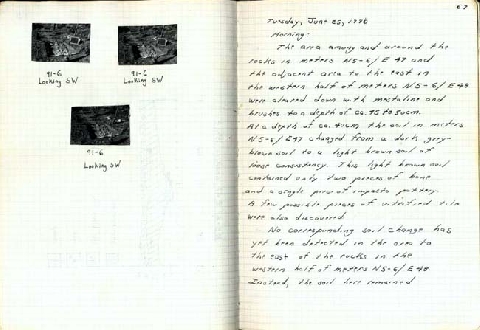 91-6
Looking SW
Looking SW
91-6
Looking SW
67
Tuesday, June 25, 1996
Morning:
The area among and around the
rocks in meters N5-6/E47 and
the adjacent area to the East in
the western half of meters N5-6/E48
were cleaned down with mestolino and
brushes to a depth of ca. 75 to 80cm.
At a depth of ca. the soil in meters
N5-6/E47 changed from a dark grey-
brown soil to a light brown soil of
loose consistency. This light brown soil
contained only two pieces of bone
and a single piece of impasto pottery.
A few possible pieces of vitrified
were also discovered.
No corresponding soil change has
yet been detected in the area to
the East of the rocks in the
western half of meters N5-6/E48
Instead, the soil here remained